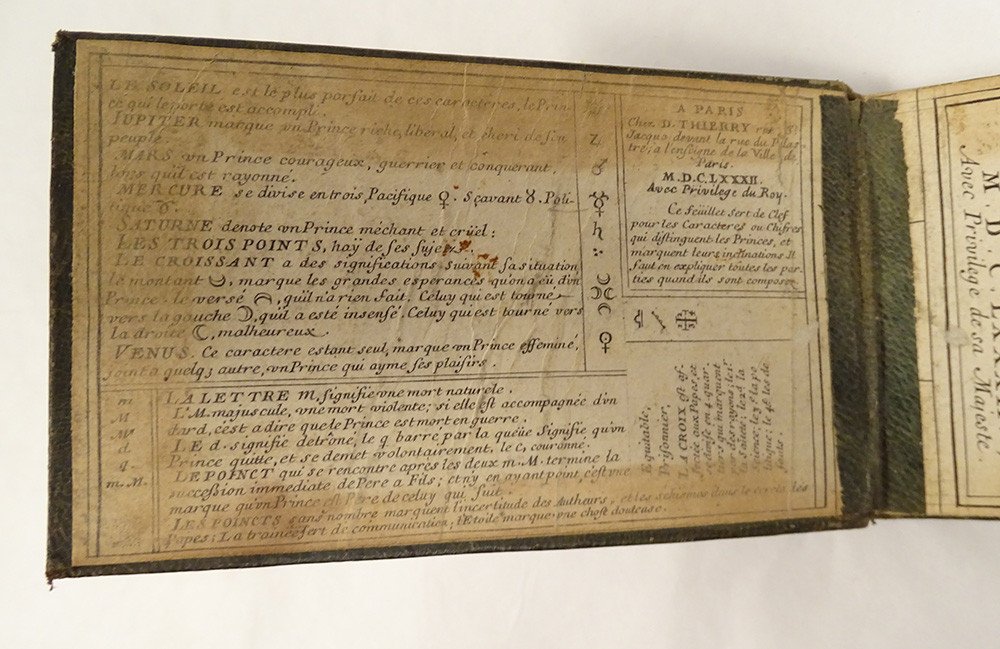 LE SOLEIL est le plus parfait de ces caracteres, le Prin-
ce qui le porte est accompli.
JUPITER marque vn Prince riche, liberal, et cheri de son
peuple.
MARS vn Prince courageux, guerrier et conquerant
lors quil est rayonné.
MERCURE se divise en trois Pacifique ♀. Sçavant ☿. Poli-
tique ♉.
SATURNE denote vn Prince méchant et crüel:
LES TROIS POINTS, haÿ de ses sujets.
LE CROISSANT a des significations suivant sa situation
le montant, marque les grandes esperances qu'on a eü d'vn
Prince. le versé, qu'il n'a rien fait. Celuy qui est tourne
vers la gauche ☽, qu'il a esté insensé. Celuy qui est tour né vers
la droite ☾, malheureux.
VENUS. Ce caractere estant seul, marque vn Prince effeminé,
joint a quelq3 autre, vn Prince qui ayme ses plaisirs.
♃
♂
☿
♄
∴
☽☾
☾
♀
A PARIS
Chez D. THIERRY rue St
Jacque devant la rue du Plas-
tre, a l'enseigne de la Ville de
Paris.
M.D.C.LXXXII.
Avec Privilege du Roy.
Ce feüillet sert de Clef
pour les Caracteres ou Chifres
qui distinguent les Princes, et
marquent leurs inclinations Il
faut en expliquer toutes les par-
ties quand ils sont composez
Equitable,
Prisonnier,
LA CROIX est af-
fectée aux Papes, et
m
M
d
q
m. M.
LA LETTRE m. signifie vne mort naturele.
L'M. majuscule, vne mort violente; si elle est accompagnée d'vn
dard, c'est a dire que le Prince est mort en guerre.
LE d. signifie detrôné, le q barré par la queüe Signifie qu'vn
Prince quitte, et se demet volontairement, le c, couronné.
LE POINCT qui se rencontre apres les deux m. M. termine la
succession immediate de Pere a Fils; et n'y en ayant point, c'est vne
marque qu'vn Prince est Pere de celuy qui suit.
LES POINCTS sans nombre marquent l'incertitude des Autheurs, et les schismes dans le cercle des
Papes; La trainée sert de communication; l'Etoile marque vne chose douteuse.
M. D C. LXX
Avec Privilege de sa Majeste